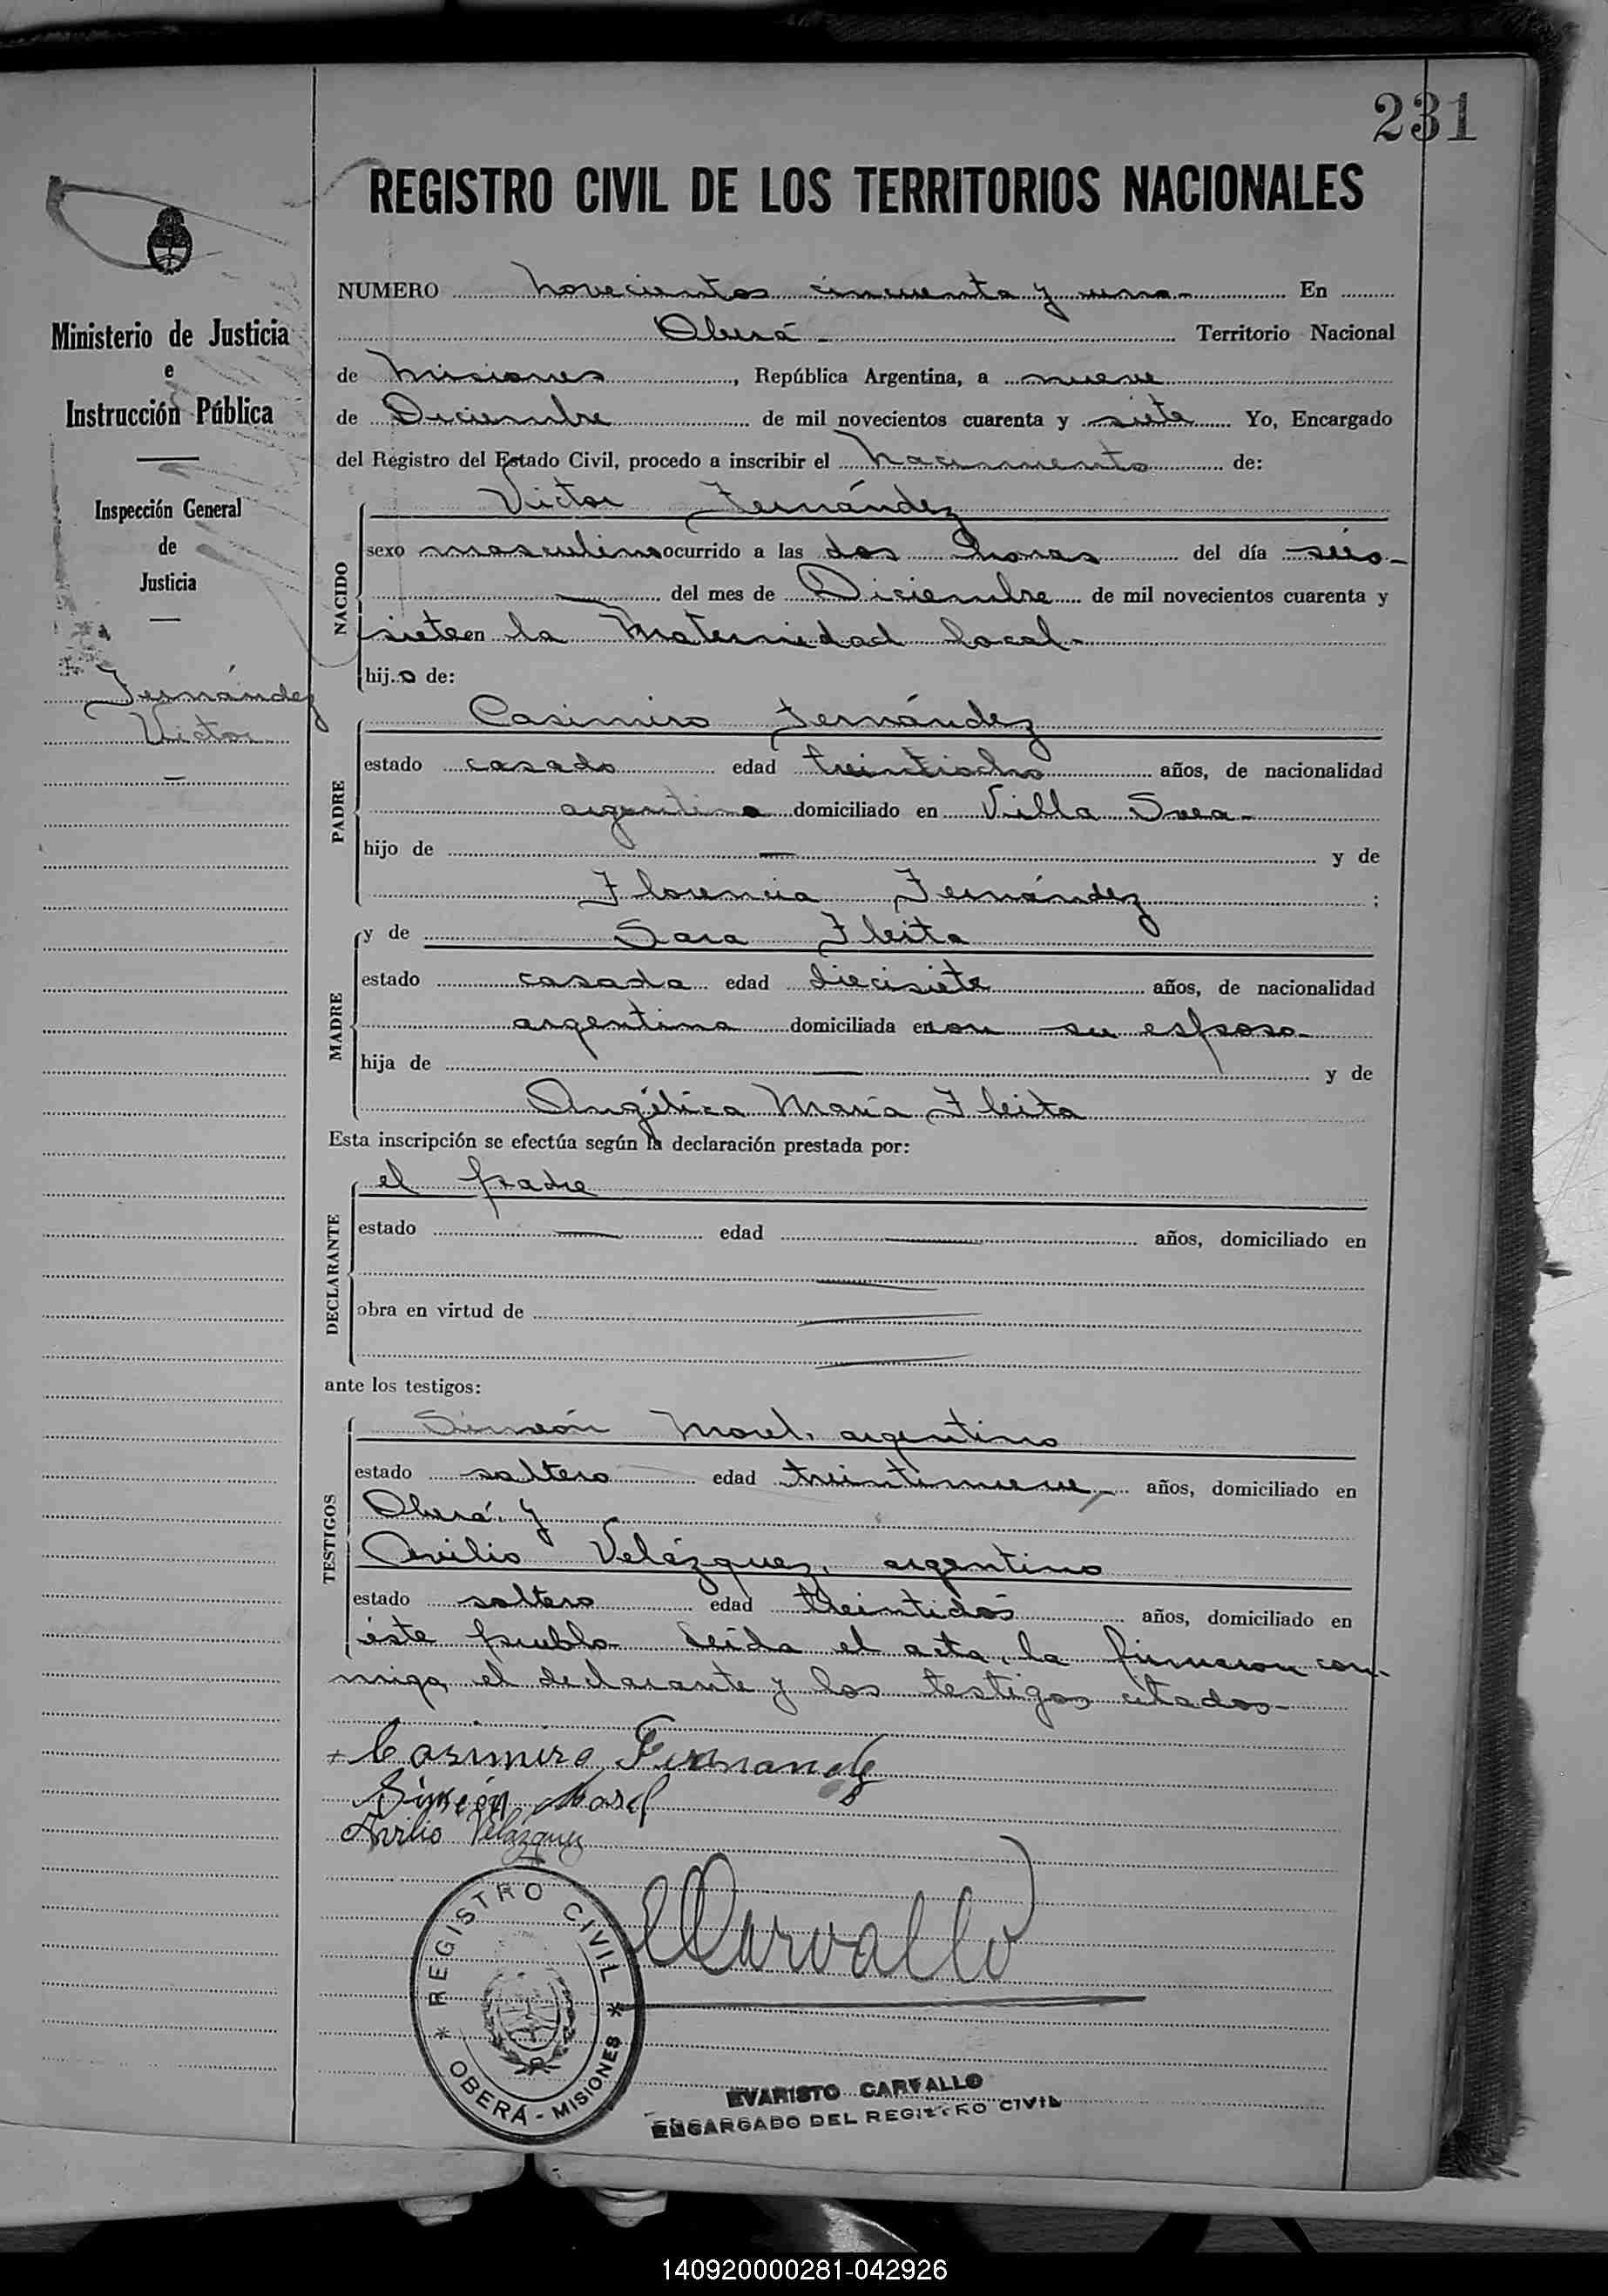 231
REGISTRO CIVIL DE LOS TERRITORIOS NACIONALES
Ministerio de Justicia
e
Instrucción Pública
Inspección General
de
Justicia
Fernández
Victor
NUMERO novecientos cincuenta y uno - En
Oberá - Territorio Nacional
de Misiones, República Argentina, a nueve
de Diciembre de mil novecientos cuarenta y siete Yo, Encargado
del Registro del Estado Civil, procedo a inscribir el nacimiento de:
NACIDO
Victor Fernández
sexo masculino ocurrido a las dos horas del día seis -
del mes de Diciembre de mil novecientos cuarenta y
siete en la Maternidad local -
hijo de:
PADRE
Casimiro Fernández
estado casado edad treintiocho años, de nacionalidad
argentina domiciliado en Villa Svea -
hijo de — y de
Florencia Fernández ;
MADRE
y de Sara Fleita
estado casada edad diecisiete años, de nacionalidad
argentina domiciliada en con su esposo -
hija de — y de
Angélica María Fleita
Esta inscripción se efectúa según la declaración prestada por:
DECLARANTE
el padre
estado — edad — años, domiciliado en
obra en virtud de
ante los testigos:
TESTIGOS
Simeón Morel, argentino
estado soltero edad treintinueve años, domiciliado en
Oberá, y
Avilio Velázquez, argentino
estado soltero edad treintidós años, domiciliado en
éste pueblo - Leída el acta, la firmaron con-
migo, el declarante y los testigos citados -
Casimiro Fernandez
Simeón Morel
Avilio Velázquez
ECarvallo
* REGISTRO CIVIL *
OBERÁ - MISIONES
EVARISTO CARVALLO
ENCARGADO DEL REGISTRO CIVIL
140920000281-042926